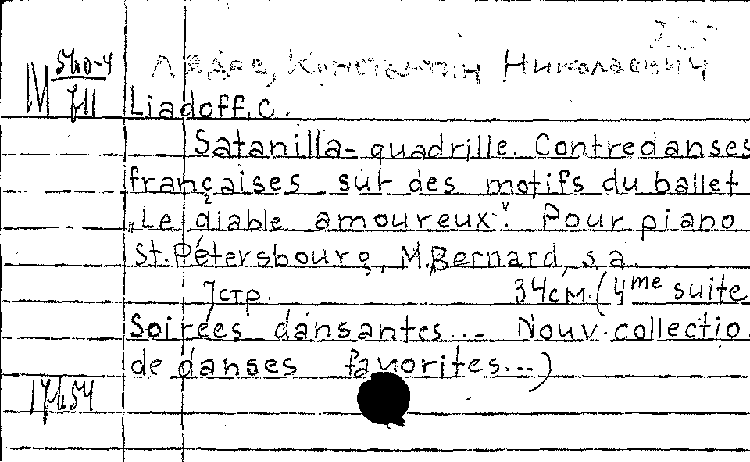 Лядов, Константин Николаевич
M 560-4
Liadoff, C.
Satanilla-quadrille. Contredanses
françaises sur des motifs du ballet
„Le diable amoureux". Pour piano
St. Pétersbourg, M. Bernard, s.a.
7стр. 34см. (4me suite
Soirées dansantes... Nouv. collectio
de danses favorites...)